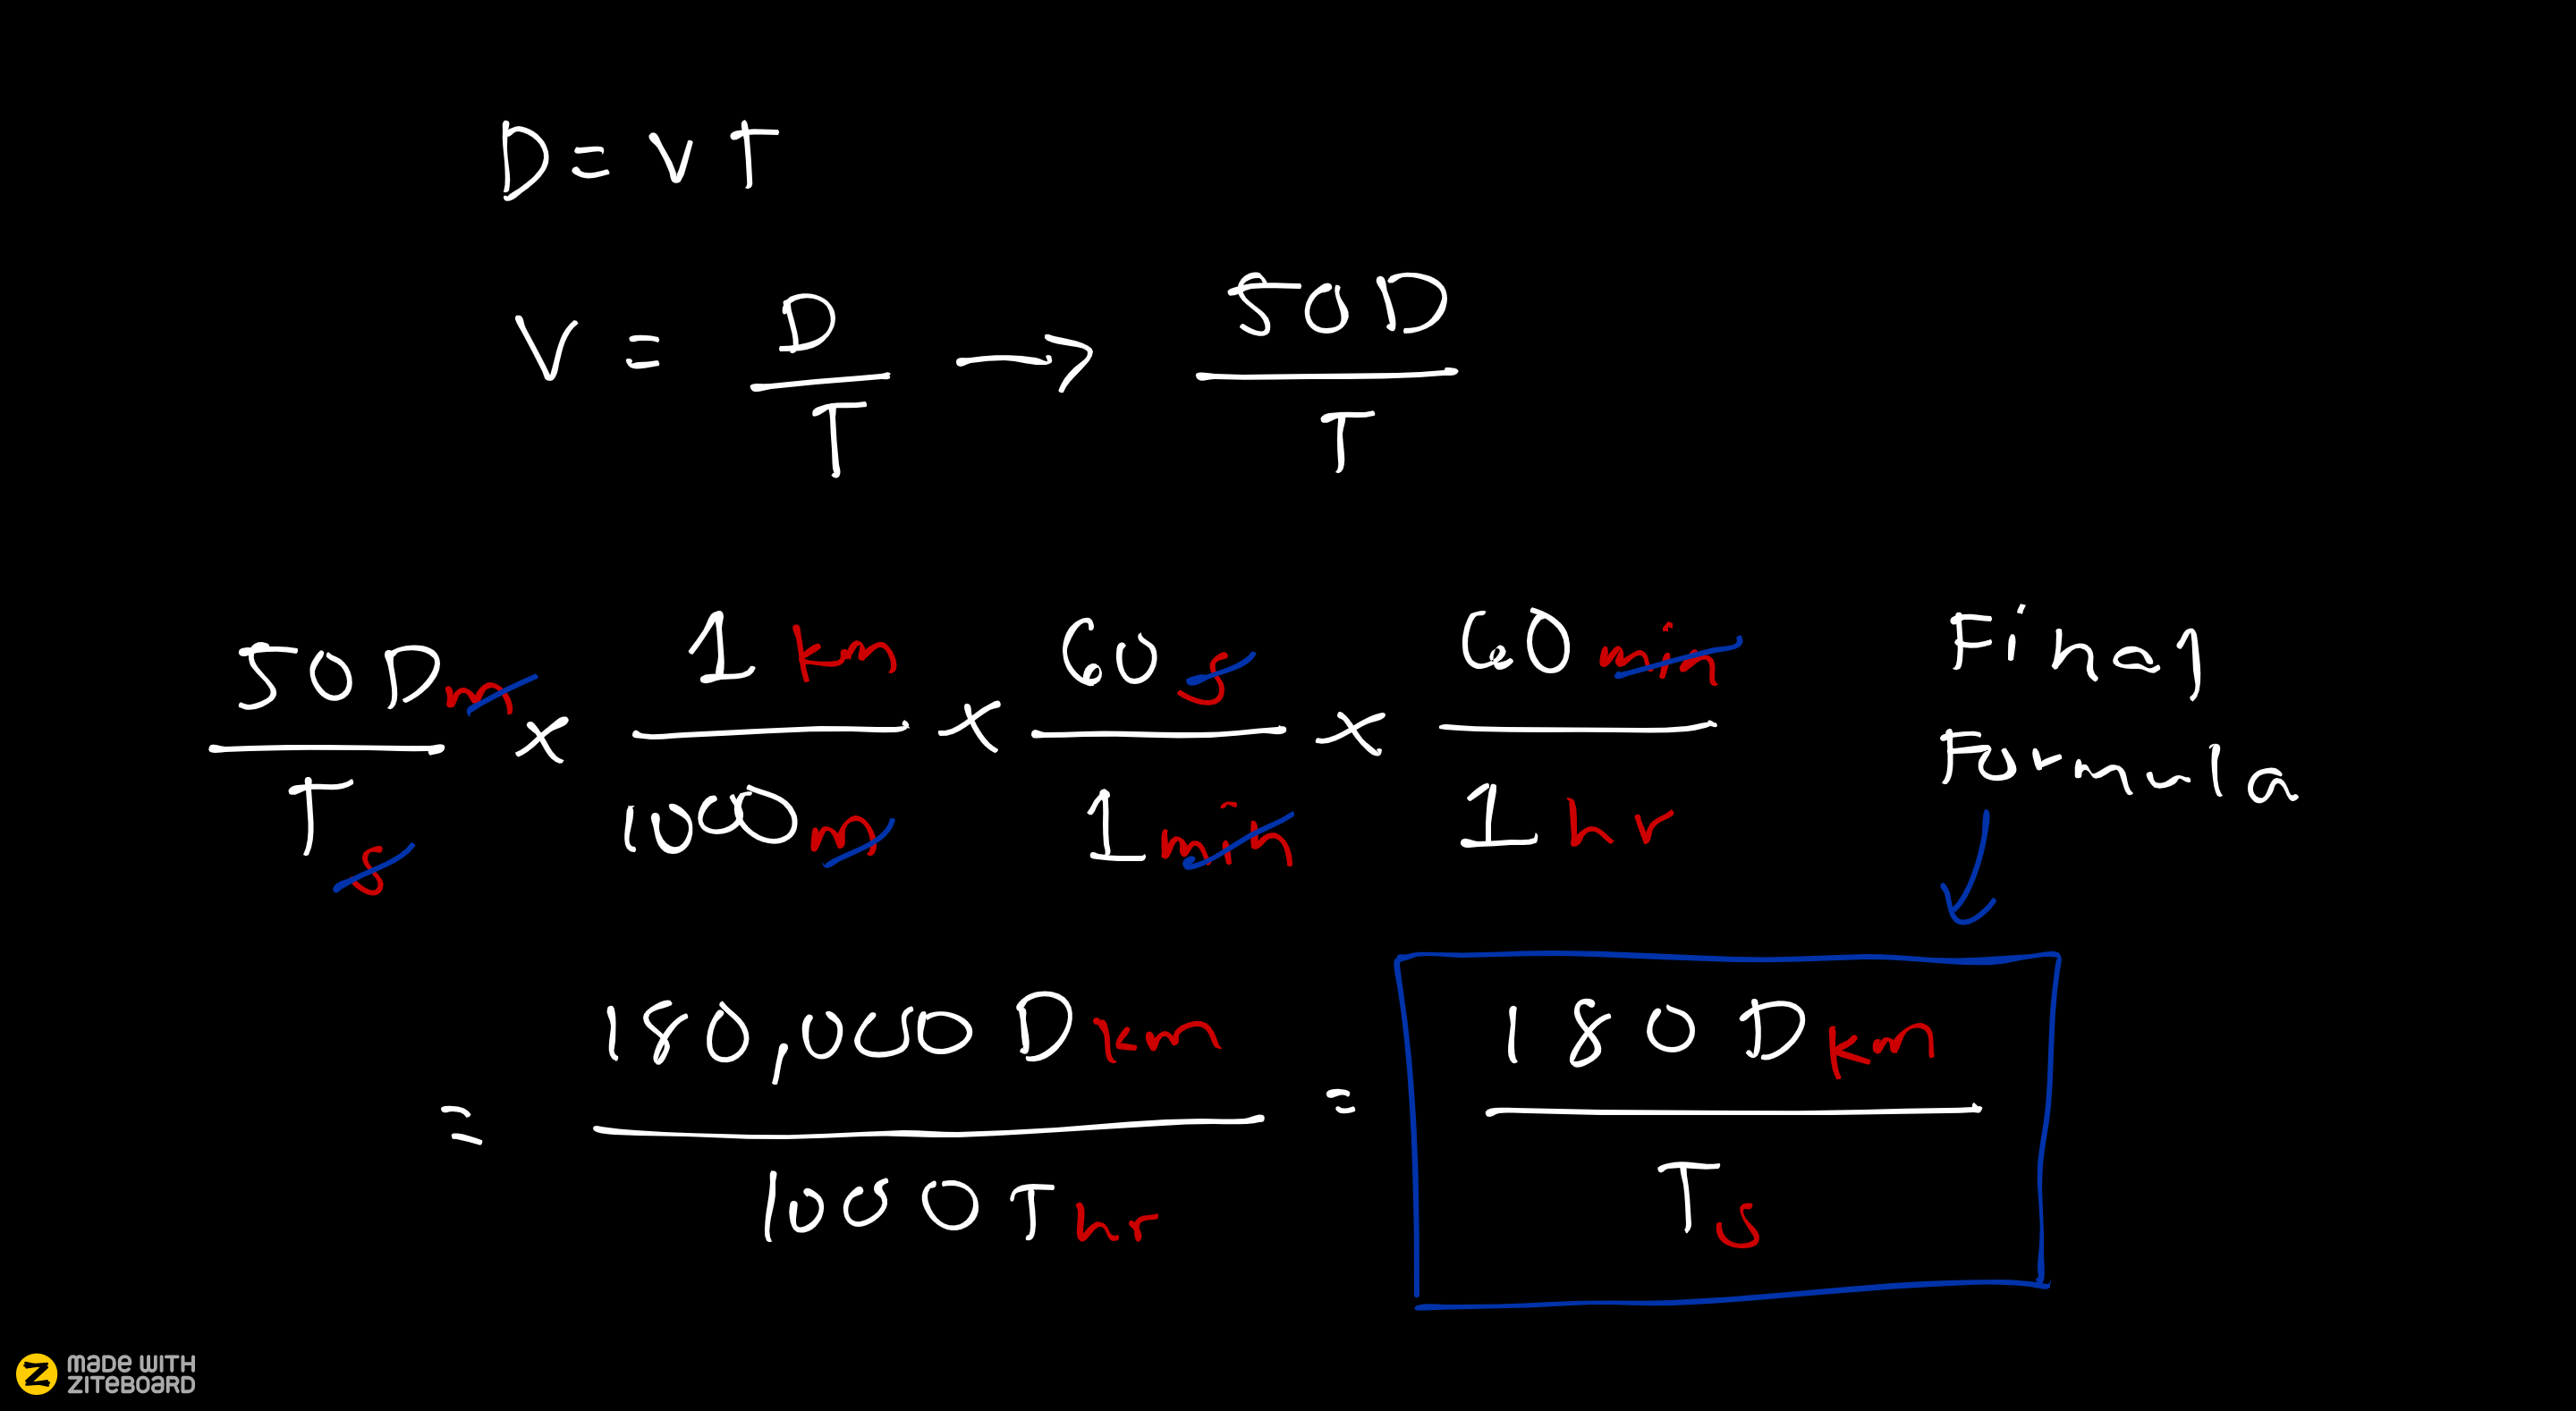 D = V T
V = D/T → 50D/T
50D m/T s × 1 km/1000 m × 60 s/1 min × 60 min/1 hr
Final
Formula
= 180,000 D km/1000 T hr = 180 D km/T s
MADE WITH
ZITEBOARD